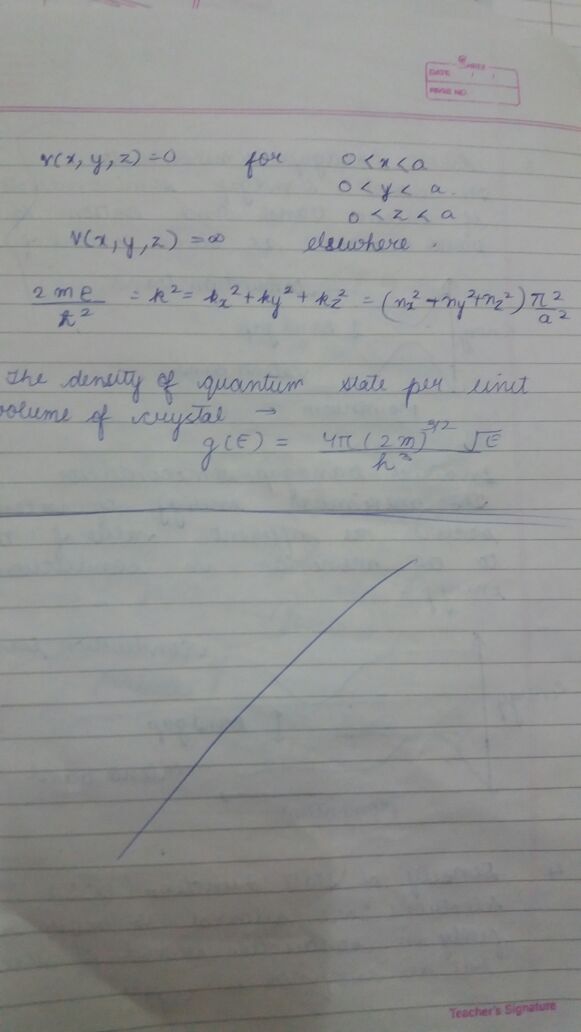 DATE / /
PAGE NO.
V(x, y, z) = 0 for 0 < x < a
0 < y < a.
0 < z < a
V(x, y, z) = ∞ elsewhere.
2mE/ħ² = k² = kx² + ky² + kz² = (nx² + ny² + nz²) π²/a²
The density of quantum state per unit
volume of crystal →
g(E) = 4π(2m)^3/2 √E / h³
Teacher's Signature